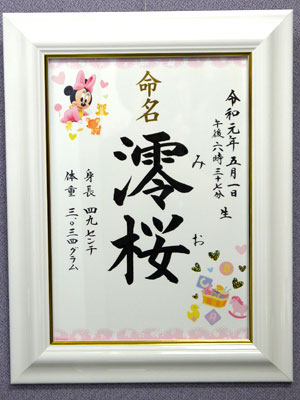 令和元年五月一日
午後六時三十七分
生
命名
澪桜
みお
身長 四九センチ
体重 三、〇三四グラム